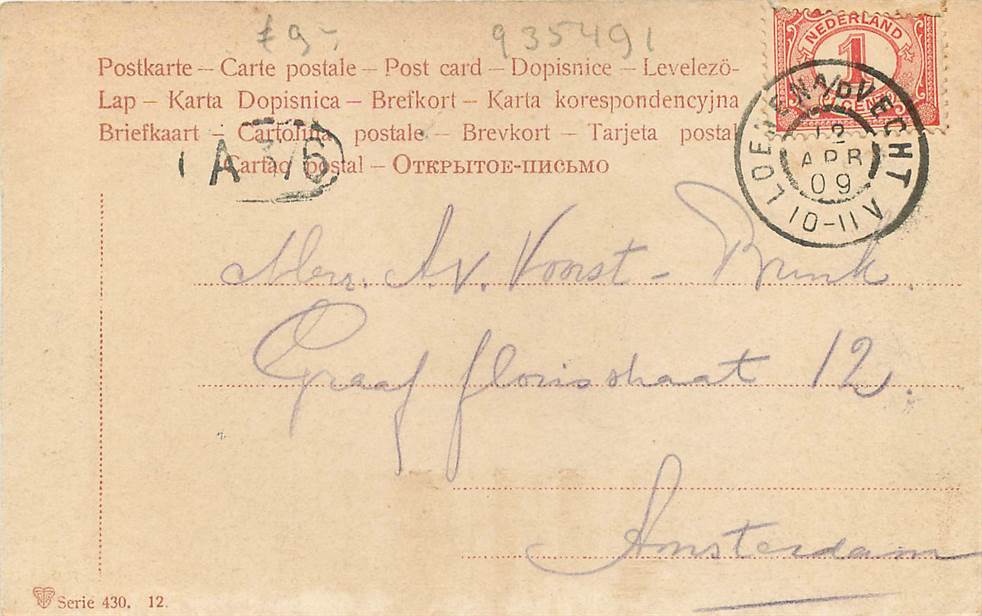 f 9,- 935491
Postkarte – Carte postale – Post card – Dopisnice – Levelezö-
Lap – Karta Dopisnica – Brefkort – Karta korespondencyjna
Briefkaart – Cartolina postale – Brevkort – Tarjeta postal
Cartao postal – Открытое-письмо
NEDERLAND
1
CENT
LOENEN A/D VECHT
12
APR
09
10-11V
A
Mevr. A.v. Voorst – Brink.
Graaf florisstraat 12.
Amsterdam
Serie 430. 12.